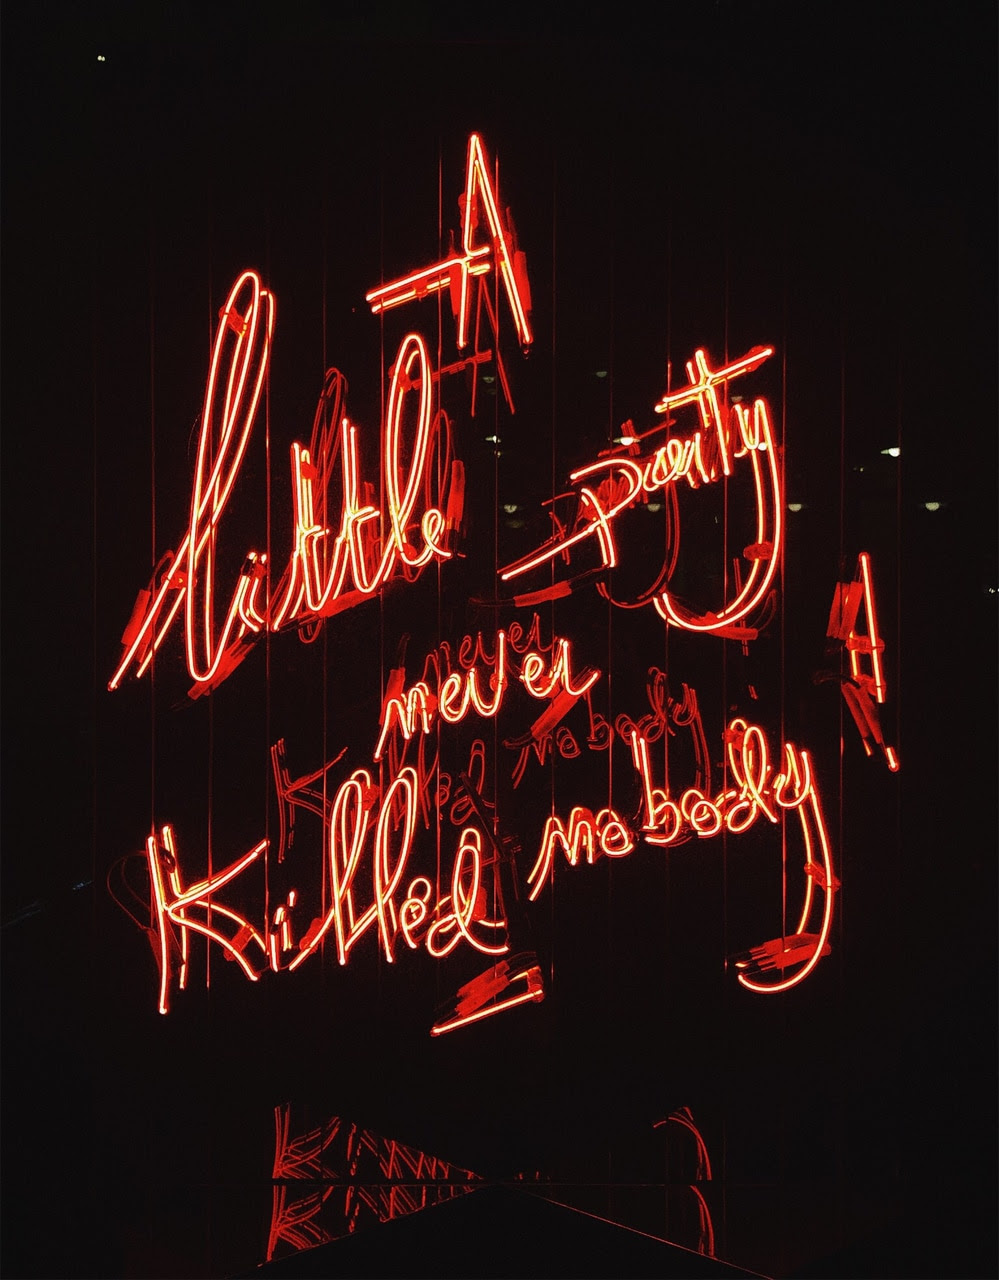 A
little party
never
Killed nobody
A